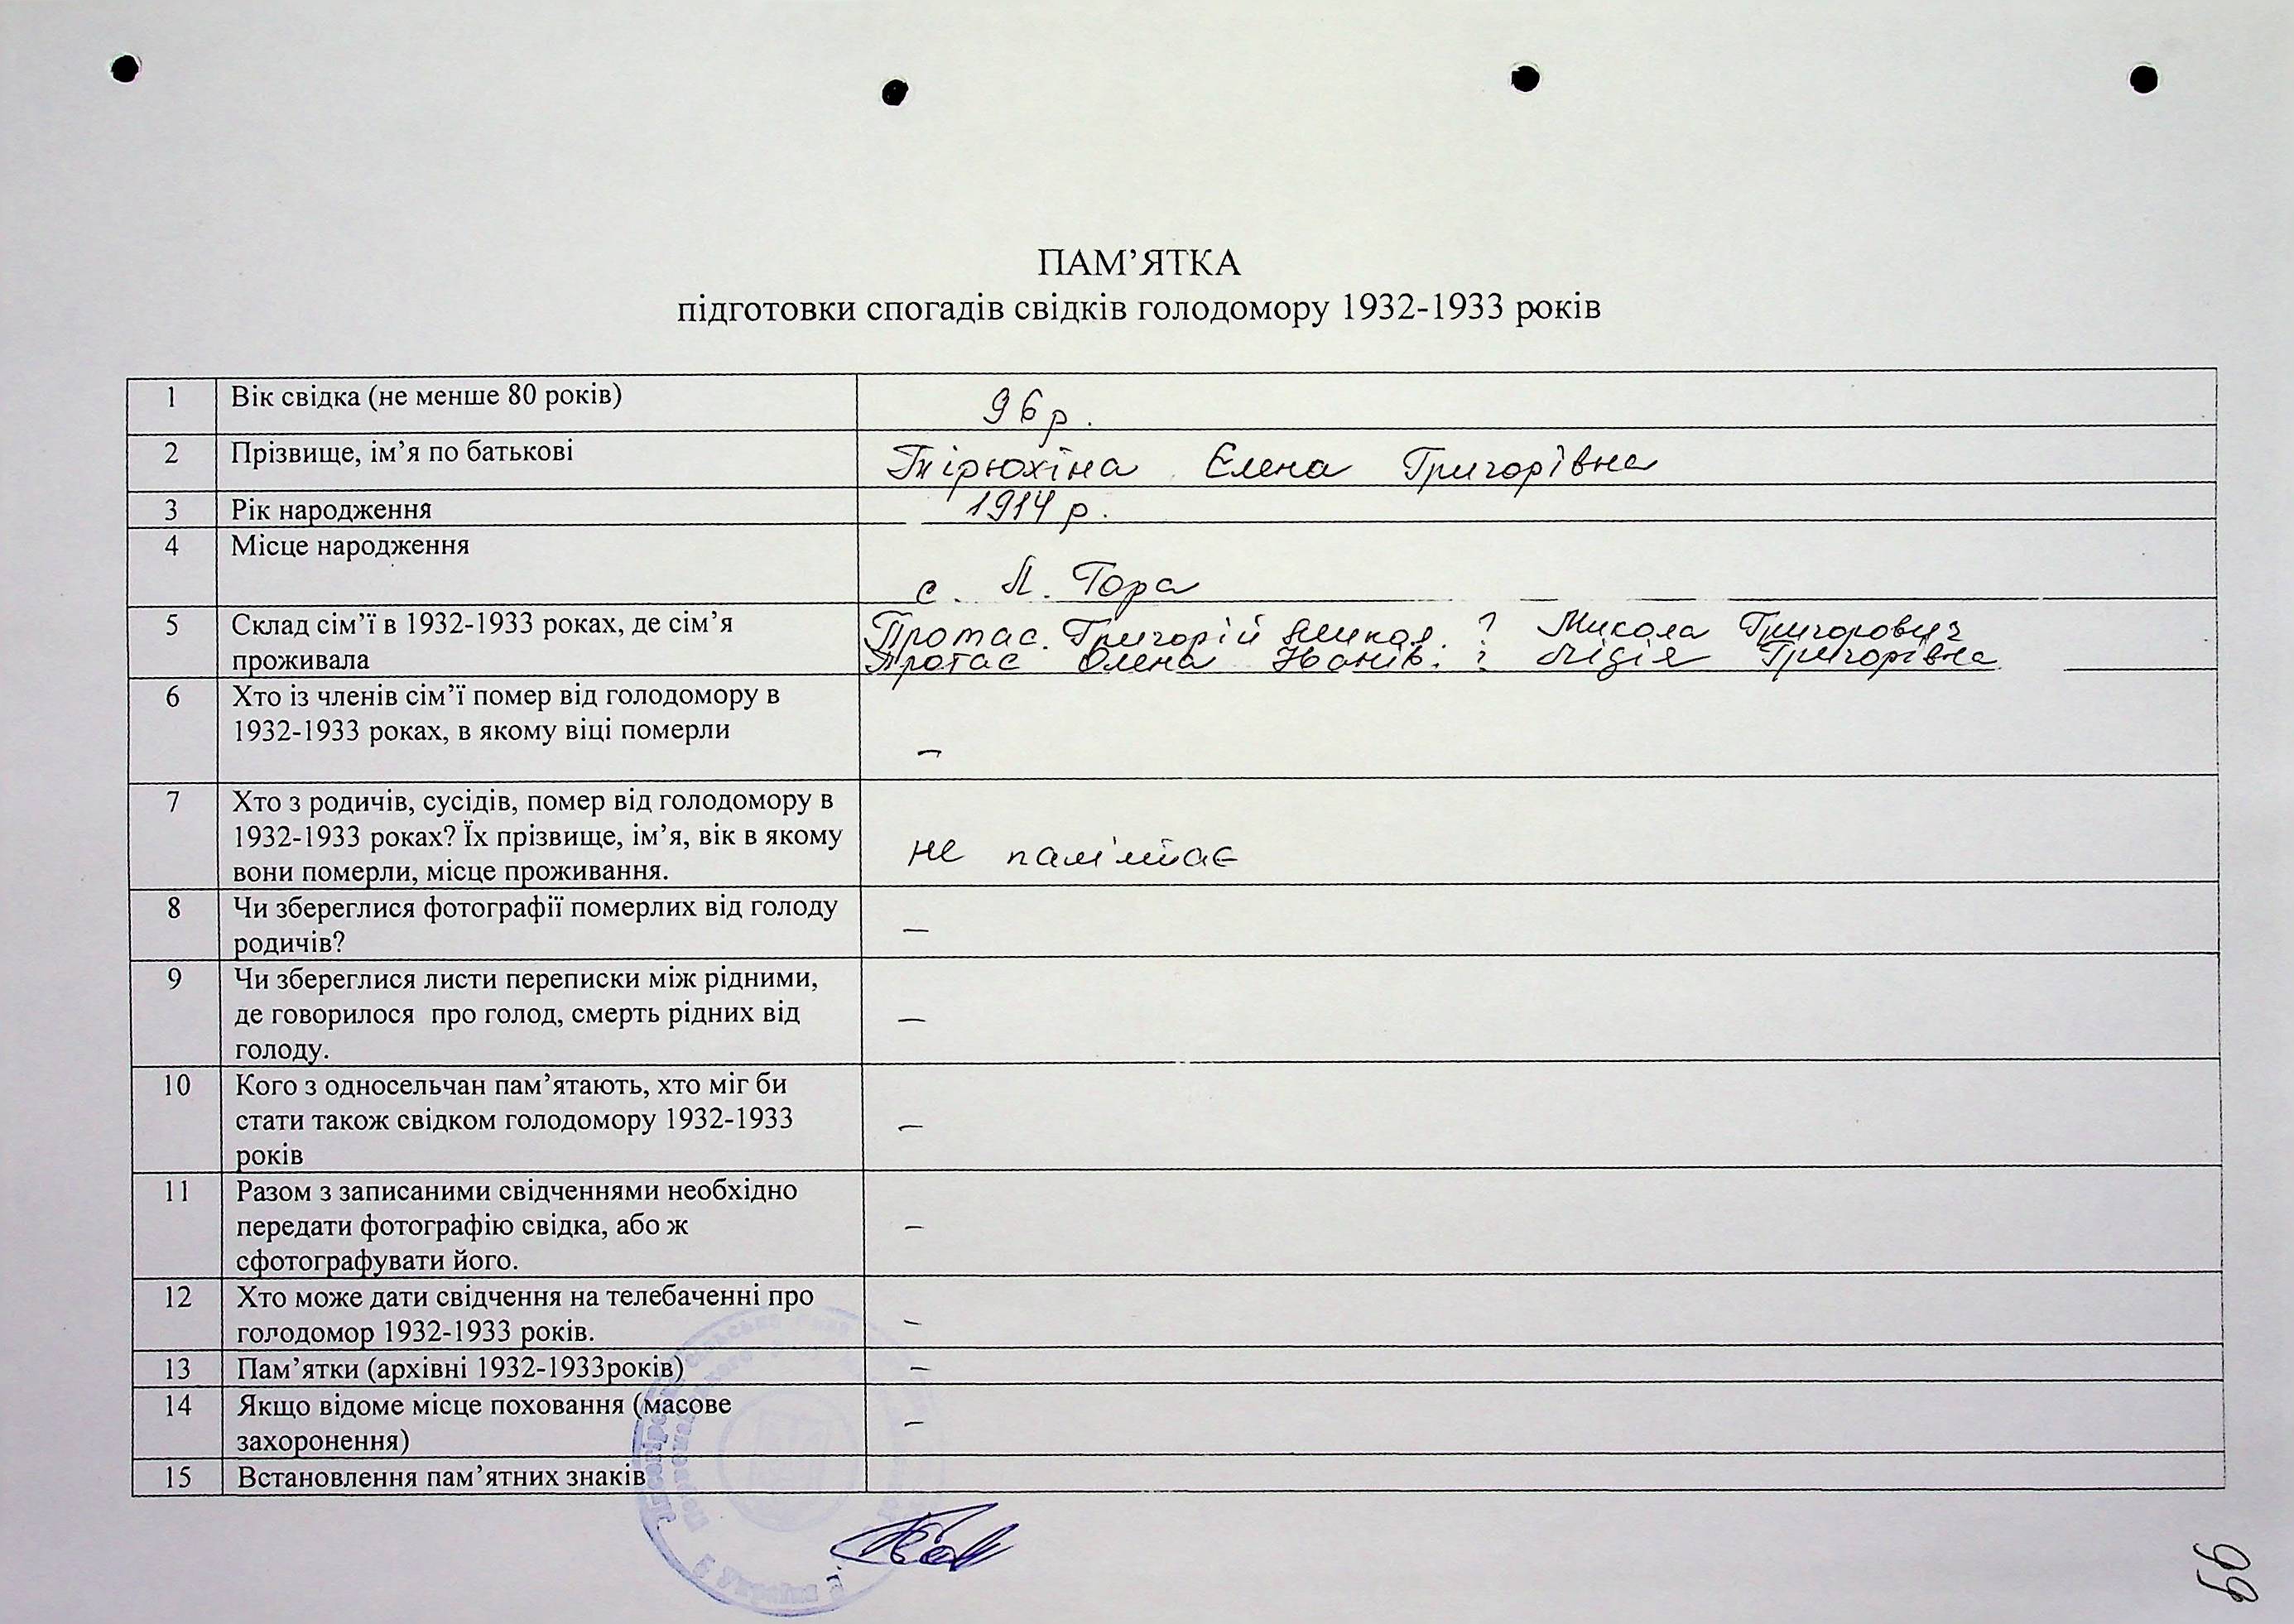 ПАМ’ЯТКА
підготовки спогадів свідків голодомору 1932-1933 років
1 Вік свідка (не менше 80 років) 96 р.
2 Прізвище, ім’я по батькові Тірюхіна Єлена Григорівна
3 Рік народження 1914 р.
4 Місце народження с. Л. Гора
5 Склад сім’ї в 1932-1933 роках, де сім’я Протас. Григорій Микол. ? Микола Григорович
проживала Протас Олена Іванів. ? Лідія Григорівна
6 Хто із членів сім’ї помер від голодомору в
1932-1933 роках, в якому віці померли –
7 Хто з родичів, сусідів, помер від голодомору в
1932-1933 роках? Їх прізвище, ім’я, вік в якому не пам'ятає
вони померли, місце проживання.
8 Чи збереглися фотографії померлих від голоду
родичів? –
9 Чи збереглися листи переписки між рідними,
де говорилося про голод, смерть рідних від –
голоду.
10 Кого з односельчан пам’ятають, хто міг би
стати також свідком голодомору 1932-1933 –
років
11 Разом з записаними свідченнями необхідно
передати фотографію свідка, або ж –
сфотографувати його.
12 Хто може дати свідчення на телебаченні про
голодомор 1932-1933 років. –
13 Пам’ятки (архівні 1932-1933років) –
14 Якщо відоме місце поховання (масове –
захоронення)
15 Встановлення пам’ятних знаків